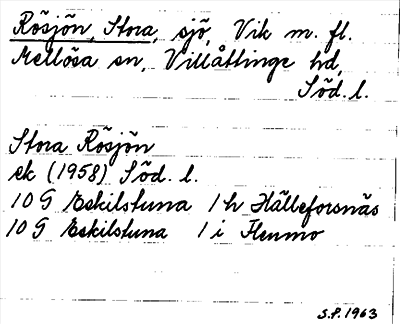 Rösjön, Stora, sjö, Vik m. fl.
Mellösa sn, Villåttinge hd,
Söd. l.
Stora Rösjön
ek (1958) Söd. l.
10 G Eskilstuna 1 h Hälleforsnäs
10 G Eskilstuna 1 i Flenmo
S.P. 1963